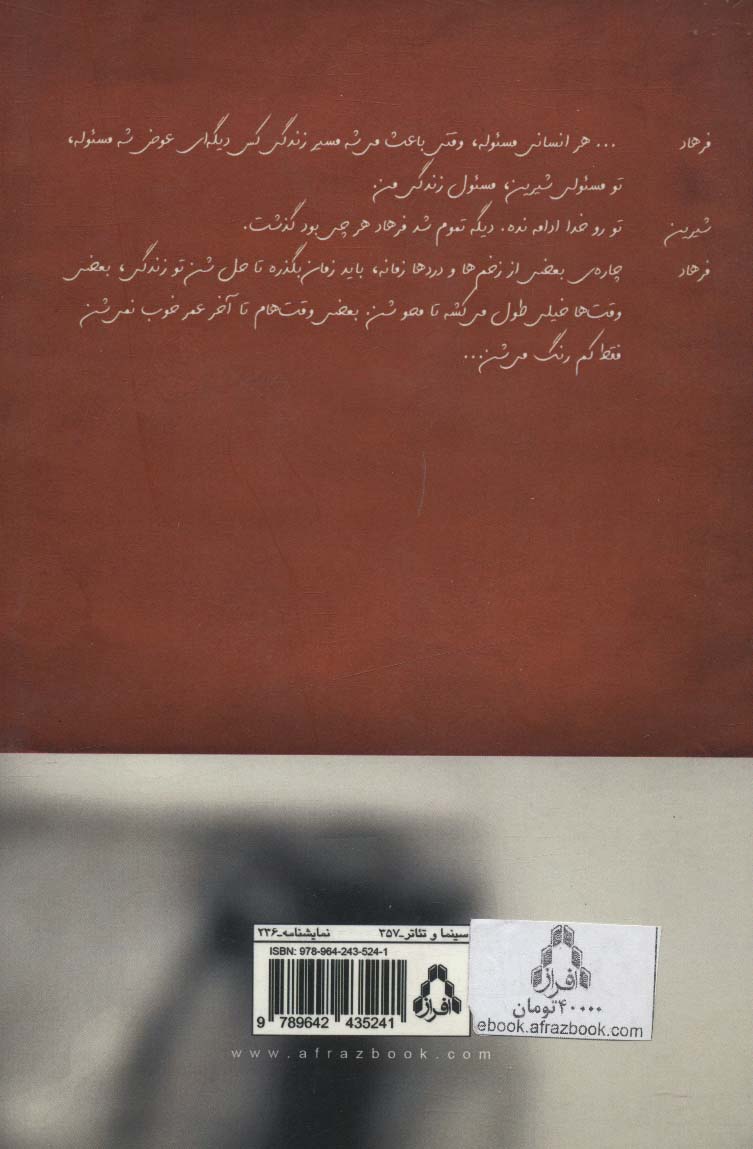 فرهاد ... هر انسانی مسئوله، وقتی باعث می‌شه مسیر زندگی کس دیگه‌ای عوض شه مسئوله،
تو مسئولی شیرین، مسئول زندگی من.
شیرین تو رو خدا ادامه نده. دیگه تموم شد فرهاد هر چی بود گذشت.
فرهاد چاره‌ی بعضی از زخم‌ها و دردها زمانه، باید زمان بگذره تا حل شن تو زندگی، بعضی
وقت‌ها خیلی طول می‌کشه تا محو شن. بعضی وقت‌هام تا آخر عمر خوب نمی‌شن
فقط کم رنگ می‌شن...
سینما و تئاتر-۳۵۷ نمایشنامه-۲۳۶
ISBN: 978-964-243-524-1
افراز
9 789642 435241
افراز
۴۰۰۰۰ تومان
ebook.afrazbook.com
www.afrazbook.com